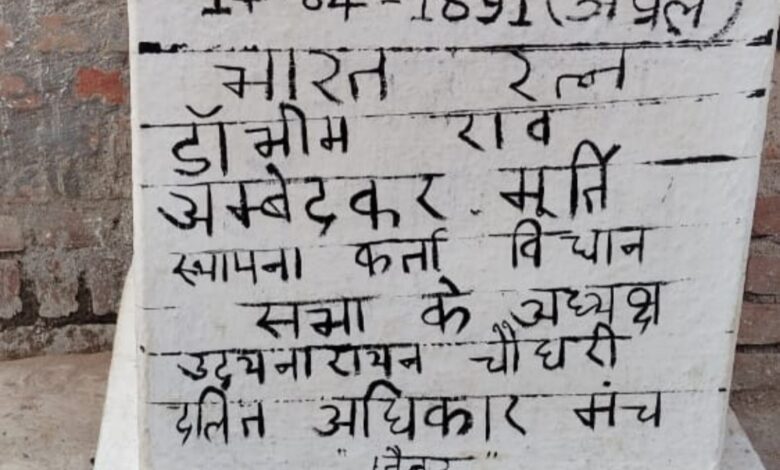 14-04-1891 (अप्रैल)
भारत रत्न
डॉ भीम राव
अम्बेद्रकर मूर्ति
स्थापना कर्ता विधान
सभा के अध्यक्ष
उदयनारायन चौधरी
दलित अधिकार मंच